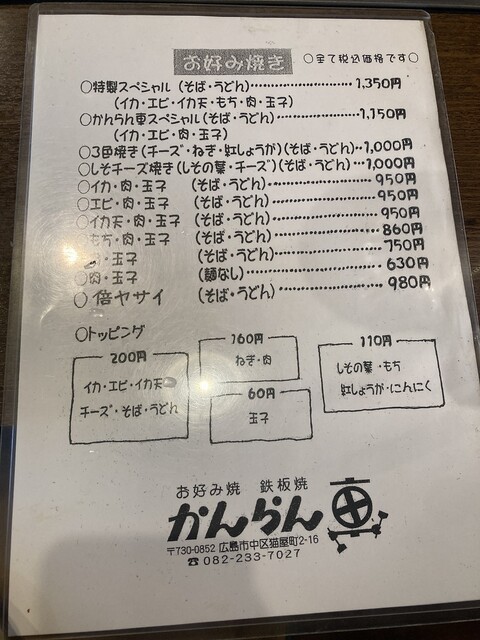 お好み焼き ○全て税込価格です○
○特製スペシャル (そば・うどん)……………1,350円
(イカ・エビ・イカ天・もち・肉・玉子)
○かんらん車スペシャル(そば・うどん)……………1,150円
(イカ・エビ・肉・玉子)
○3色焼き(チーズ・ねぎ・紅しょうが)(そば・うどん)…1,000円
○しそチーズ焼き(しその葉・チーズ)(そば・うどん)…1,000円
○イカ・肉・玉子 (そば・うどん)……………950円
○エビ・肉・玉子 (そば・うどん)……………950円
○イカ天・肉・玉子 (そば・うどん)……………950円
○もち・肉・玉子 (そば・うどん)……………860円
・玉子 (そば・うどん)……………750円
○肉・玉子 (麺なし)……………630円
○倍ヤサイ (そば・うどん)……………980円
○トッピング
200円
イカ・エビ・イカ天
チーズ・そば・うどん
160円
ねぎ・肉
60円
玉子
110円
しその葉・もち
紅しょうが・にんにく
お好み焼 鉄板焼
かんらん車
〒730-0852 広島市中区猫屋町2-16
☎082-233-7027